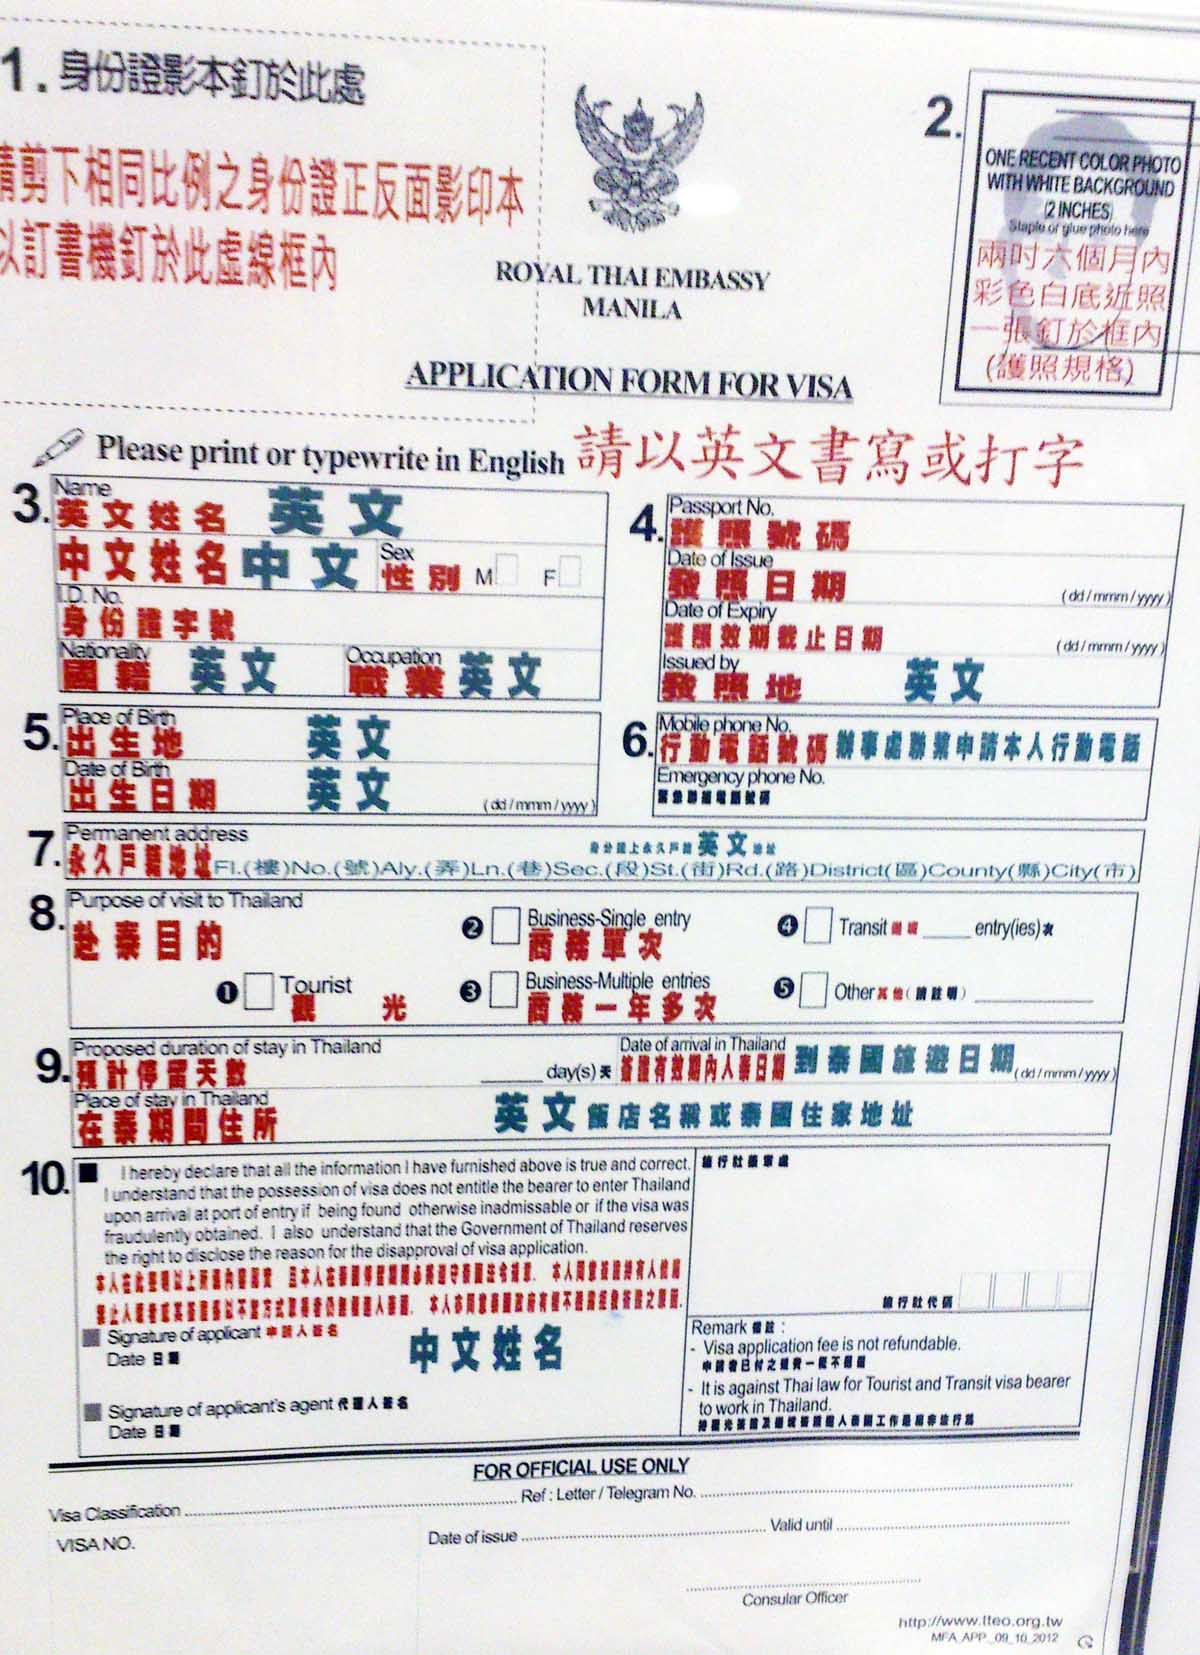 1. 身份證影本釘於此處
請剪下相同比例之身份證正反面影印本
以訂書機釘於此虛線框內
ROYAL THAI EMBASSY
MANILA
APPLICATION FORM FOR VISA
2.
ONE RECENT COLOR PHOTO
WITH WHITE BACKGROUND
(2 INCHES)
Staple or glue photo here
兩吋六個月內
彩色白底近照
一張釘於框內
(護照規格)
Please print or typewrite in English 請以英文書寫或打字
3. Name
英文姓名 英文
中文姓名 中文 Sex 性別 M F
I.D. No.
身份證字號
Nationality
國籍 英文
Occupation
職業 英文
4. Passport No.
護照號碼
Date of Issue
發照日期 (dd / mmm / yyyy)
Date of Expiry
護照效期截止日期 (dd / mmm / yyyy)
Issued by
發照地 英文
5. Place of Birth
出生地 英文
Date of Birth
出生日期 英文 (dd / mmm / yyyy)
6. Mobile phone No.
行動電話號碼 辦事處聯繫申請本人行動電話
Emergency phone No.
緊急聯絡電話號碼
7. Permanent address
永久戶籍地址 身分證上永久戶籍英文地址
Fl.(樓)No.(號)Aly.(弄)Ln.(巷)Sec.(段)St.(街)Rd.(路)District(區)County(縣)City(市)
8. Purpose of visit to Thailand
赴泰目的
❶ Tourist
觀光
❷ Business-Single entry
商務單次
❸ Business-Multiple entries
商務一年多次
❹ Transit 過境 _____ entry(ies) 次
❺ Other 其他 (請註明) _____
9. Proposed duration of stay in Thailand
預計停留天數 _____ day(s) 天
Date of arrival in Thailand
簽證有效期內入泰日期 到泰國旅遊日期 (dd / mmm / yyyy)
Place of stay in Thailand
在泰期間住所 英文飯店名稱或泰國住家地址
10. I hereby declare that all the information I have furnished above is true and correct.
I understand that the possession of visa does not entitle the bearer to enter Thailand
upon arrival at port of entry if being found otherwise inadmissable or if the visa was
fraudulently obtained. I also understand that the Government of Thailand reserves
the right to disclose the reason for the disapproval of visa application.
Signature of applicant 申請人簽名
Date 日期
中文姓名
Signature of applicant's agent 代理人簽名
Date 日期
旅行社蓋章處
旅行社代碼
Remark 備註 :
- Visa application fee is not refundable.
- It is against Thai law for Tourist and Transit visa bearer
to work in Thailand.
FOR OFFICIAL USE ONLY
Visa Classification
Ref : Letter / Telegram No.
VISA NO.
Date of issue
Valid until
Consular Officer
http://www.tteo.org.tw
MFA_APP_09_10_2012